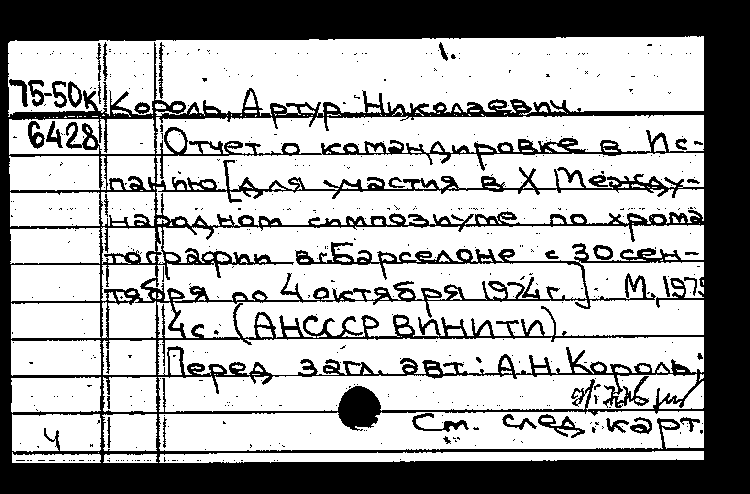 1.
75-50к Король, Артур Николаевич.
6428 Отчет о командировке в Ис-
панию [для участия в X Между-
народном симпозиуме по хрома
тографии в г. Барселоне с 30 сен-
тября по 4 октября 1974г.]. М., 1975
4с. (АН СССР ВИНИТИ).
Перед загл. авт.: А.Н. Король;
См. след. карт.
4